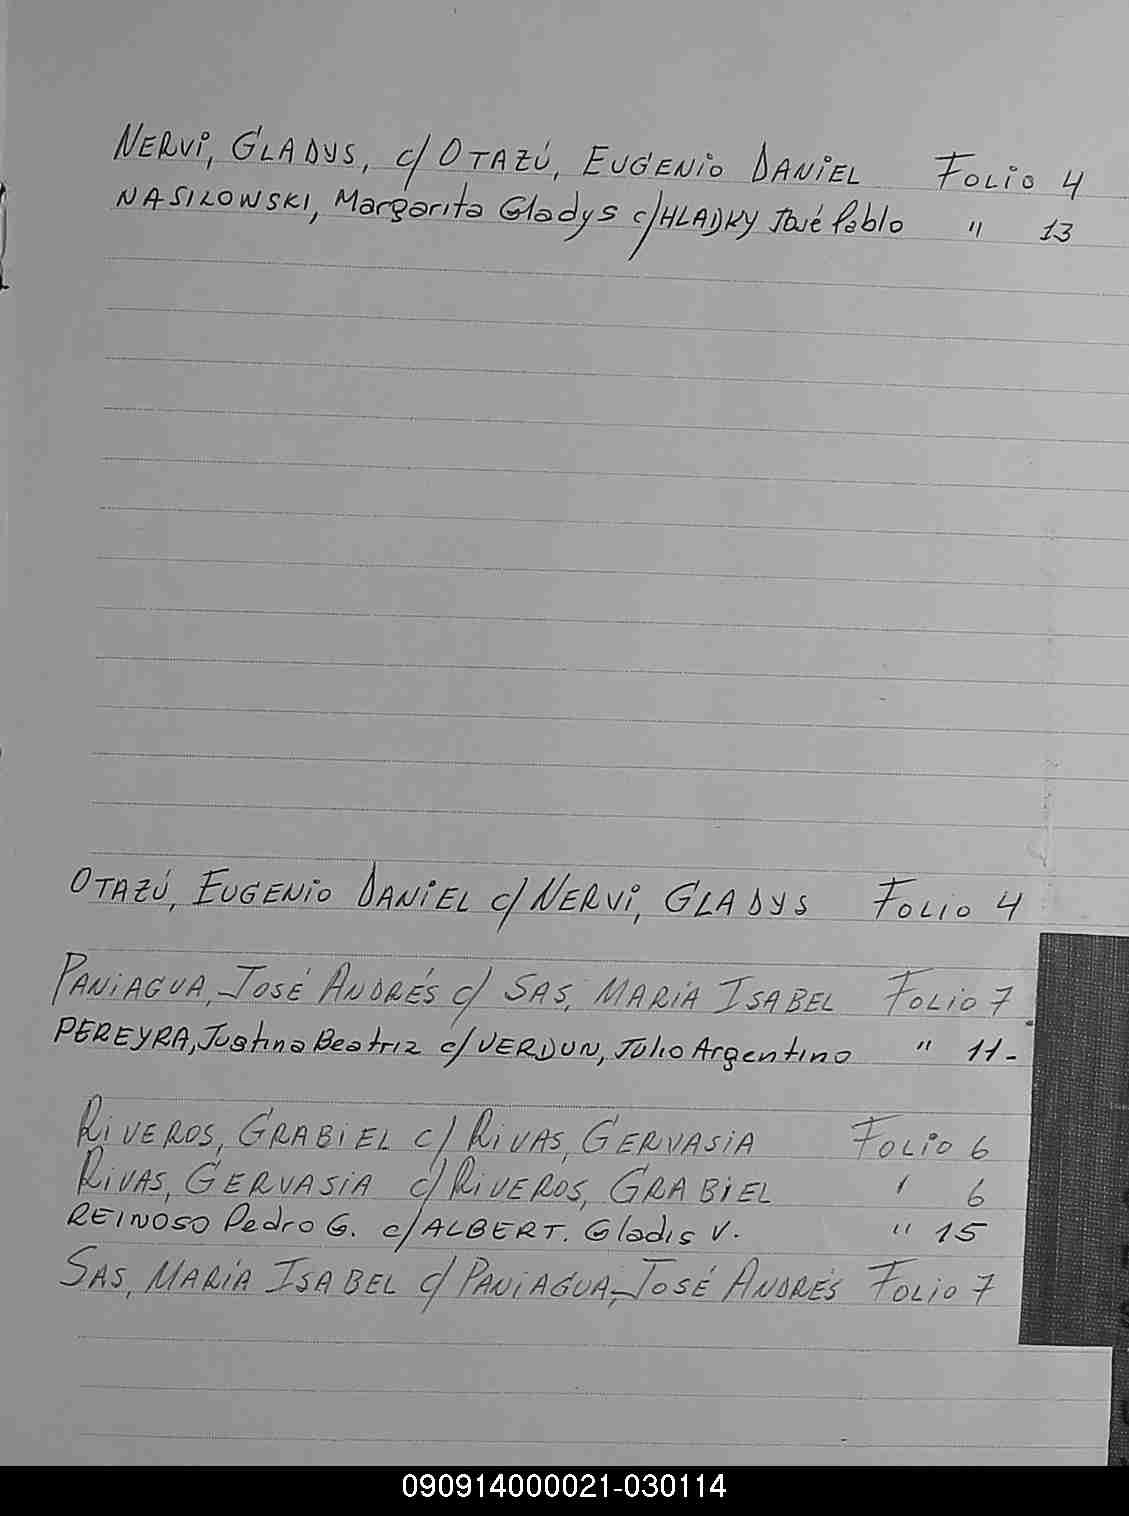 NERVI, GLADYS, c/ OTAZÚ, EUGENIO DANIEL FOLIO 4
NASILOWSKI, Margarita Gladys c/HLADKY José Pablo " 13
OTAZÚ, EUGENIO DANIEL c/ NERVI, GLADYS FOLIO 4
PANIAGUA, JOSÉ ANDRÉS c/ SAS, MARÍA ISABEL FOLIO 7
PEREYRA, Justina Beatriz c/ VERDUN, Julio Argentino " 11-
RIVEROS, GRABIEL c/ RIVAS, GERVASIA FOLIO 6
RIVAS, GERVASIA c/ RIVEROS, GRABIEL " 6
REINOSO Pedro G. c/ ALBERT. Gladis V. " 15
SAS, MARÍA ISABEL c/ PANIAGUA, JOSÉ ANDRÉS FOLIO 7
090914000021-030114